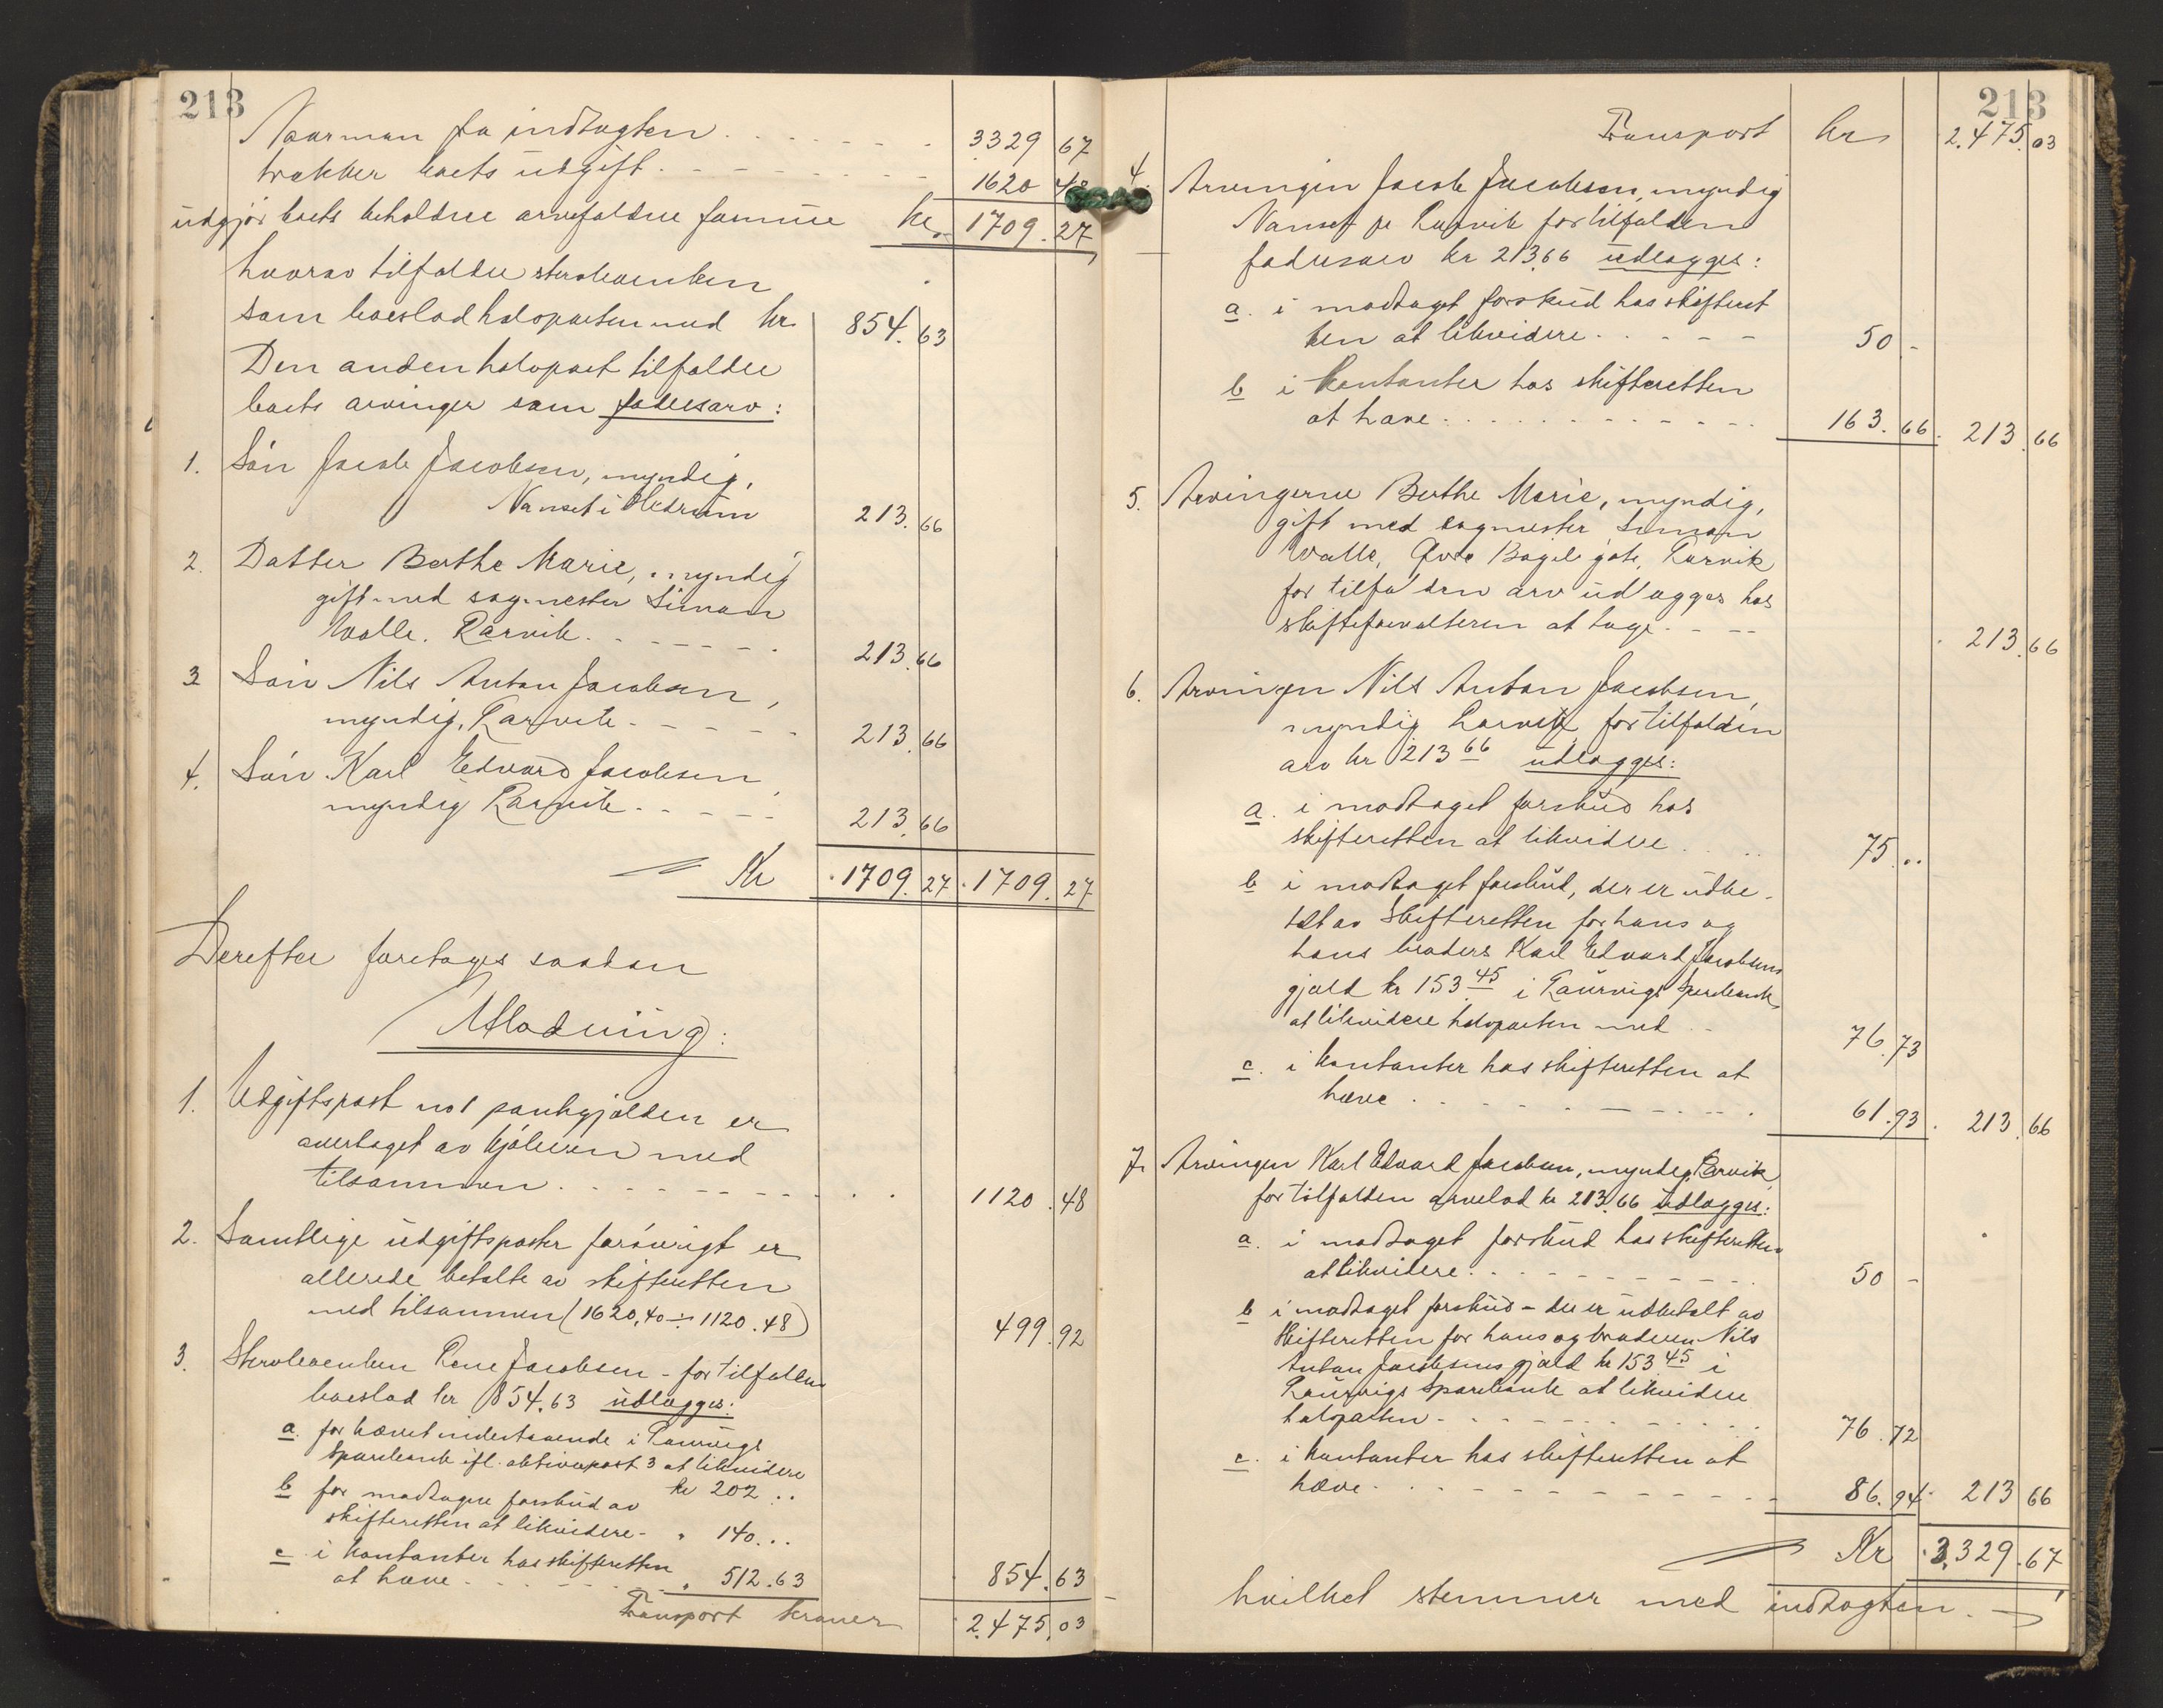 213
Naarman fra indtægten . . . . . . . 3329 67
trækker boets udgift . . . . . . . 1620 40
udgjør boets beholdne arvefaldne formue kr. 1709.27
hvorav tilfalder stervboenken
som boeslod halvparten med kr. 854.63
Den anden halvpart tilfalder
boets arvinger som fædrearv:
1. Søn Jacob Jacobsen, myndig,
Nanset i Hedrum 213.66
2. Datter Berthe Marie, myndig
gift med sagmester Simon
Walle. Larvik. - - - - . 213.66
3 Søn Nils Anton Jacobsen,
myndig, Larvik - - - - 213.66
4. Søn Karl Edvard Jacobsen,
myndig Larvik. - - - - 213.66
Kr 1709.27 1709.27
Derefter foretages saadan
Utlodning:
1. Udgiftspost no 1 pantegjælden er
overtaget av kjøberen med
tilsammen . . . . . . . . . 1120.48
2. Samtlige udgiftsposter forøvrigt er
allerede betalte av skifteretten
med tilsammen (1620,40 ÷ 1120.48) 499.92
3. Stervboenken Lene Jacobsen - for tilfalden
boeslod kr 854.63 udlægges:
a. for hævet indestaaende i Laurvigs
Sparebank ifl. aktivapost 3 at likvidere
kr 202 ..
b for modtagne forskud av
skifteretten at likvidere - " 140...
c i kontanter hos skifteretten
at hæve - - - - - " 512.63 854.63
Transport kroner 2.475.03
213
Transport kr 2.475.03
4. Arvingen Jacob Jacobsen, myndig
Nanset pr Larvik for tilfalden
fædrearv kr 213.66 udlægges:
a. i modtaget forskud hos skifteret
ten at likvidere . . - - - 50 -
b i kontanter hos skifteretten
at hæve . . . . . . . . . 163.66. 213.66
5. Arvingerne Berthe Marie, myndig,
gift med sagmester Simon
Walle, Øvre Bøgel gate, Larvik
for tilfalden arv udlægges hos
skifteforvalteren at tage - - - 213.66
6. Arvingen Nils Anton Jacobsen,
myndig Larvik, for tilfalden
arv kr 213 66 udlægges:
a. i modtaget forskud hos
skifteretten at likvidere . . . 75...
b i modtaget forskud, der er udbe-
talt av Skifteretten for hans og
hans broders Karl Edvard Jacobsens
gjæld kr 153 45 i Laurvigs Sparebank,
at likvidere halvparten med . - 76.73
c. i kontanter hos skifteretten at
hæve . . . . . . . . . 61.93. 213.66
7. Arvingen Karl Edvard Jacobsen, myndig, Larvik,
for tilfalden arvelod kr 213.66 udlægges:
a. i modtaget forskud hos skifteretten
at likvidere . . . . . . . . 50 -
b i modtaget forskud - der er udbetalt av
Skifteretten for hans og broderen Nils
Anton Jacobsens gjæld kr 153 45 i
Laurvigs Sparebank at likvidere
halvparten . . . . . . . . 76.72
c. i kontanter hos skifteretten at
hæve . . . . . . . . . 86.94. 213 66
Kr 3.329.67
hvilket stemmer med indtægten.